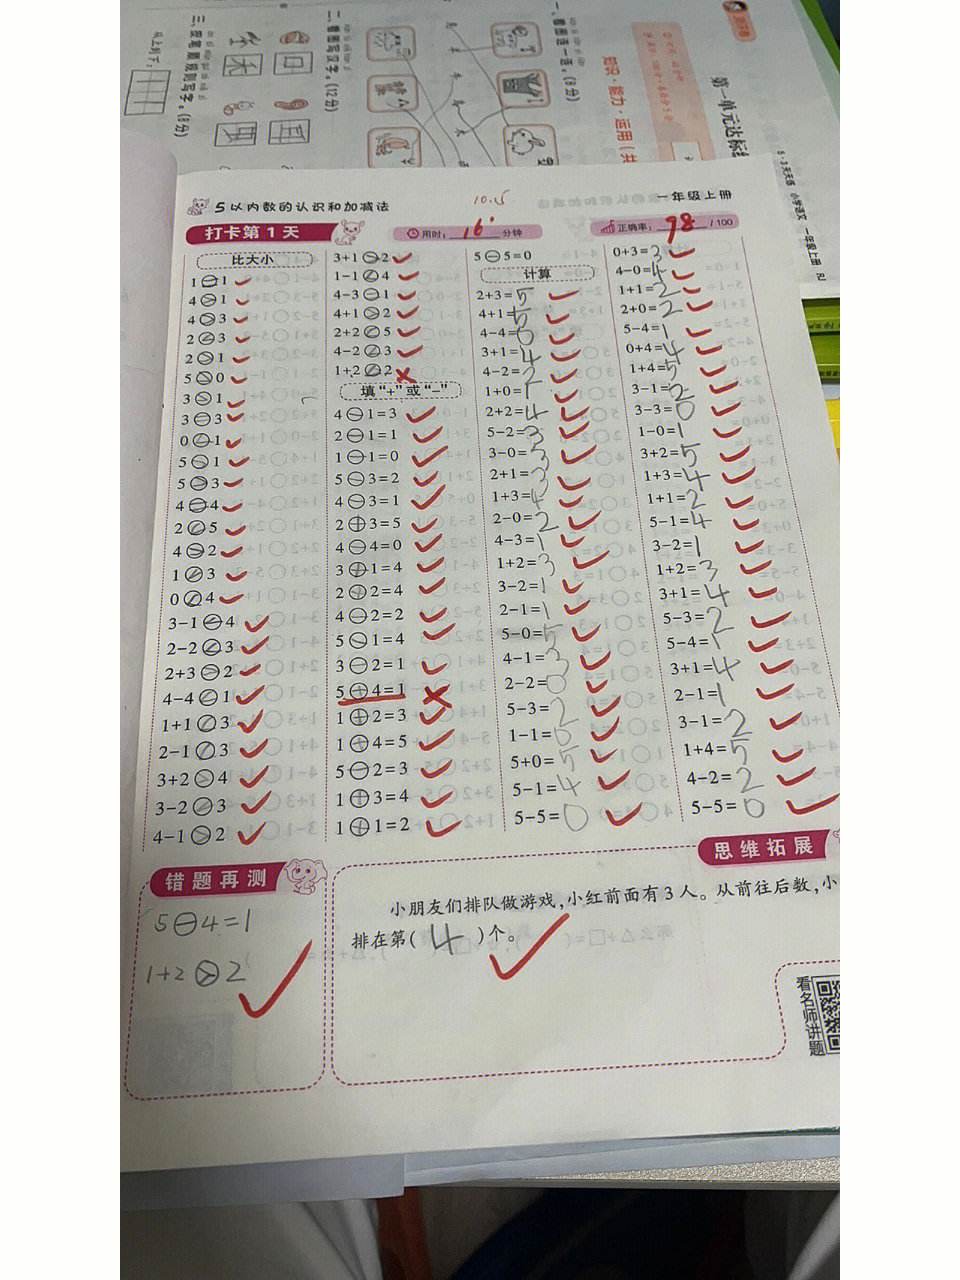 5以内数的认识和加减法
10.15
一年级上册
打卡第1天
用时: 16 分钟
正确率: 98 /100
比大小
1=1
4>1
4>3
2<3
2>1
5>0
3>1
3=3
0<1
5>1
5>3
4=4
2<5
4>2
1<3
0<4
3-1<4
2-2<3
2+3>2
4-4<1
1+1<3
2-1<3
3+2>4
3-2<3
4-1>2
3+1>2
1-1<4
4-3=1
4+1>2
2+2<5
4-2<3
1+2<2
填“+”或“-”
4-1=3
2-1=1
1-1=0
5-3=2
4-3=1
2+3=5
4-4=0
3+1=4
2+2=4
4-2=2
5-1=4
3-2=1
5+4=1
1+2=3
1+4=5
5-2=3
1+3=4
1+1=2
5-5=0
计算
2+3=5
4+1=5
4-4=0
3+1=4
4-2=2
1+0=1
2+2=4
5-2=3
3-0=3
2+1=3
1+3=4
2-0=2
4-3=1
1+2=3
3-2=1
2-1=1
5-0=5
4-1=3
2-2=0
5-3=2
1-1=0
5+0=5
5-1=4
5-5=0
0+3=3
4-0=4
1+1=2
2+0=2
5-4=1
0+4=4
1+4=5
3-1=2
3-3=0
1-0=1
3+2=5
1+3=4
1+1=2
5-1=4
3-2=1
1+2=3
3+1=4
5-3=2
5-4=1
3+1=4
2-1=1
3-1=2
1+4=5
4-2=2
5-5=0
错题再测
5-4=1
1+2>2
思维拓展
小朋友们排队做游戏,小红前面有3人。从前往后数,小
排在第(4)个。
看名师讲题
第一单元达标
5·3天天练 小学语文 一年级上册 RJ
知识·能力·运用(共
一、看图连一连。(8分)
二、看图写汉字。(12分)
三、按笔顺规则写字。(8分)
从上到下